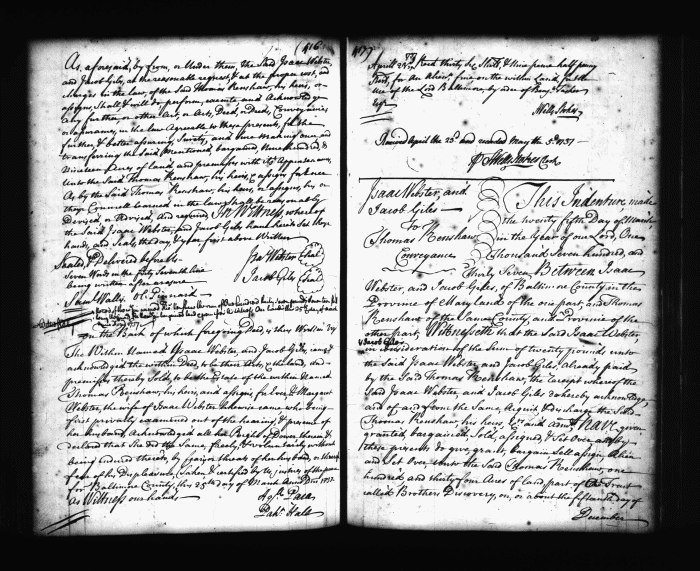 (416)
As, aforesaid, by from, or Under them, the Said Isaac Webster,
and Jacob Giles, at the reasonable request, & at the proper cost, and
charges in the law, of the Said Thomas Renshaw, his heirs, or
assigns, Shall & will do perform, execute and Acknowledge
any further, or other Act, or Acts, Deed, or Deeds, Conveyances
or assurance, in the law Agreable to these presents, for the
further, & better assuring, Surety, and Sure making over, and
transferring the Said Mentioned, bargained Hundred, &
Nineteen Acres of land and premisses with its Appurtenances,
Unto the Said Thomas Renshaw, his heirs, & assigns for ever
As by the Said Thomas Renshaw, his heirs, or assigns, his or
their Councel learned in the law, Shall be reasonably
Devised, or Advised, and required, In Witness, whereof
the Said Isaac Webster, and Jacob Giles, have hereto Set their
hands, and Seals, the day, & year first above Written
Sealed & Delivered before Us
Isa Webster Seal
Seven Words in the forty Seventh line
Jacob Giles Seal
being written after erazure
Saml Walls
on the Back of which foregoing Deed, is thus Written by
The Within Named Isaac Webster, and Jacob Giles, came, &
acknowledged the within Deed, to be their Acts, & the land, and
premisses thereby Sold, to be the Estate of the within Named
Thomas Renshaw, his heirs, and assigns, for Ever & Margaret
Webster, the wife of Isaac Webster Likewise came who being
first privately examined out of the hearing, & presence of
her husband, Acknowledged all her Right of Dower therein &
declared that She did the Same, freely, & voluntarily without
being induced thereto, by fears or threats of her husband, or through
fear of his Displeasure, (taken & certified by Us, justices of the peace
for Baltimore County, this 25th day of March Anno Dom 1737
as Witness our hands
Parkr Hall
417
April 25th Recd thirty Shill, & Nine pence half penny
Sterl, for an Alien, fine on the within Land, for the
Use of the Lord Baltimore, by order of Benj: Tasker
Esqr
Wells Stokes
Received April the 25th and recorded May the 3d 1737
Wells Stokes Clerk
Isaac Webster, and
Jacob Giles
To
Thomas Renshaw
Conveyance
This Indenture, made
the twenty fifth Day of March
in the Year of our Lord, One
thousand Seven hundred, and
Thirty Seven Between Isaac
Webster, and Jacob Giles, of Baltimore County in the
Province of Maryland of the one part, and Thomas
Renshaw of the Same County, and Province of the
other part, Witnesseth that the Said Isaac Webster,
& Jacob Giles
in consideration of the Sum of twenty pounds unto
the Said Isaac Webster, and Jacob Giles, Already paid
by the Said Thomas Renshaw, the receipt whereof the
Said Isaac Webster, and Jacob Giles Doth hereby acknowledge
and of and from the Same, Acquit & discharge the Said
Thomas Renshaw, his heirs, &c and Assigns Have given
granted, bargained, Sold, assigned, & Set over, and by
these presents do give, grant, bargain Sell assign Alien
and Set Over, Unto the Said Thomas Renshaw, one
hundred and thirty four Acres of land, part of a Tract
called Brothers Discovery, on, or about the fifteenth day of
December